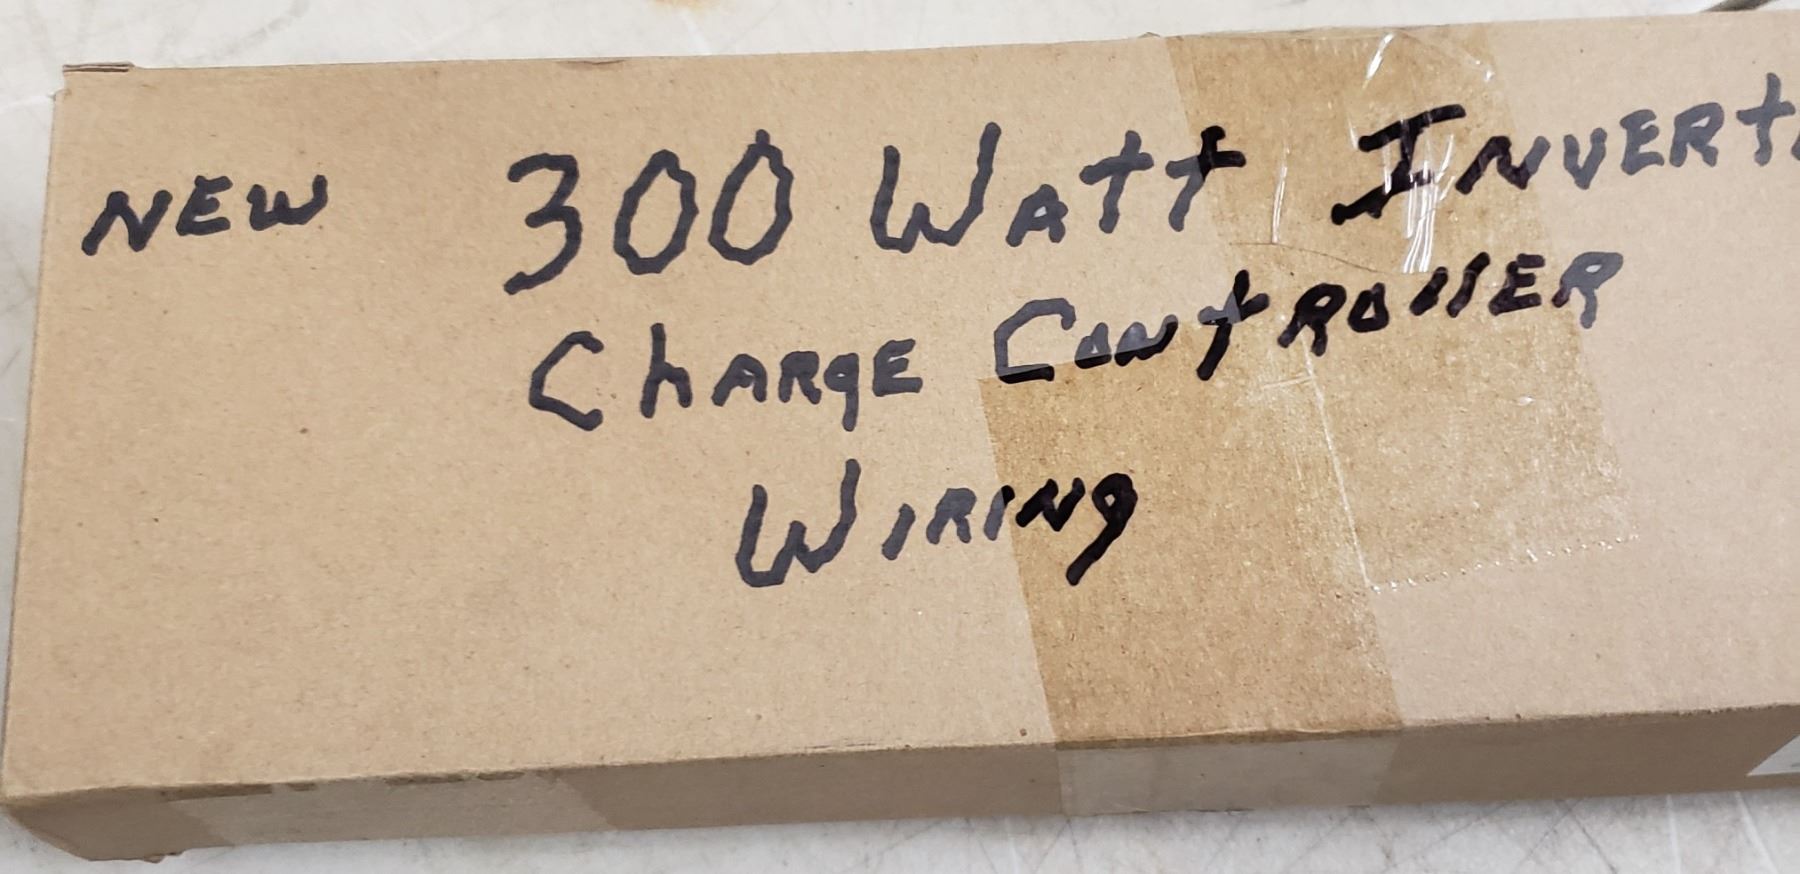 NEW 300 WAtt INVERt
ChARgE CONtROllER
WIRINg